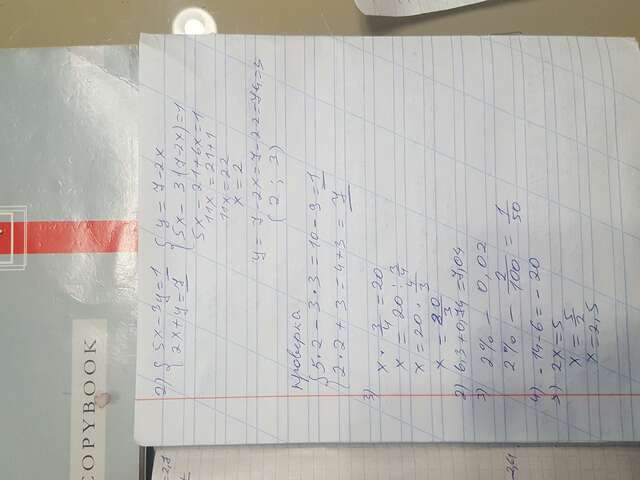 2) { 5x - 3y = 1 { y = 7 - 2x
{ 2x + y = 7 { 5x - 3(7 - 2x) = 1
5x - 21 + 6x = 1
11x = 21 + 1
11x = 22
x = 2
y = 7 - 2x = 7 - 2·2 = 7 - 4 = 3
(2; 3)
Проверка
{ 5·2 - 3·3 = 10 - 9 = 1
{ 2·2 + 3 = 4 + 3 = 7
3)
x · 3/4 = 20
x = 20 : 3/4
x = 20 · 4/3
x = 80/3
2) 6,3 + 0,74 = 7,04
3) 2% - 0,02
2% - 2/100 = 1/50
4) -14 - 6 = -20
5) 2x = 5
x = 5/2
x = 2,5
COPYBOOK